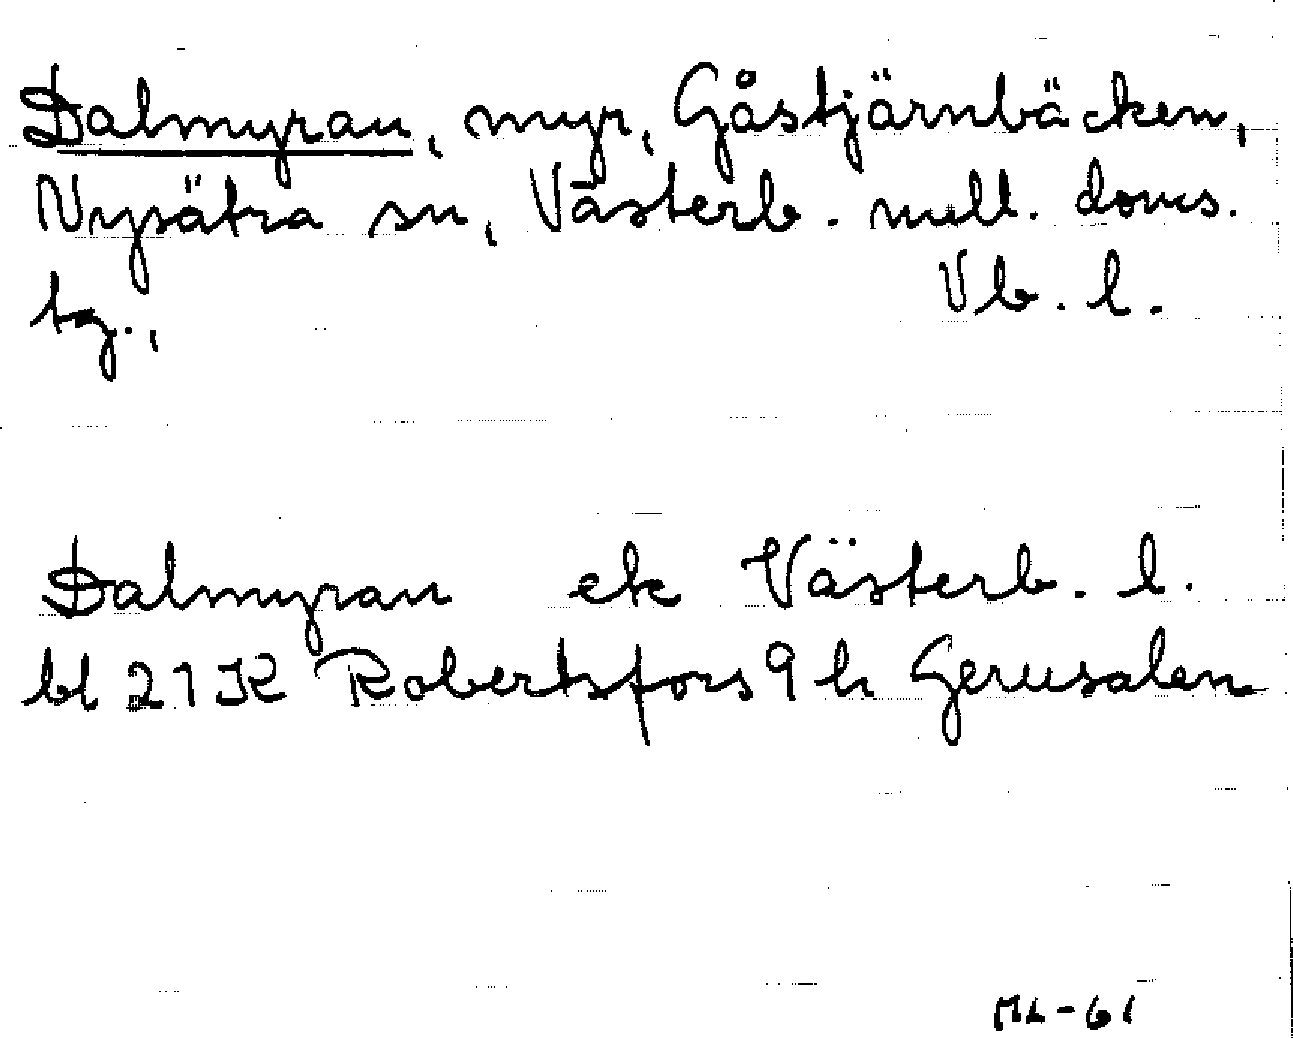 Dalmyran, myr, Gåstjärnbäcken,
Nysätra sn, Västerb. mell. doms.
tg., Vb. l.
Dalmyran ek Västerb. l.
bl 21 K Robertsfors 9 h Gerusalem
ML-61